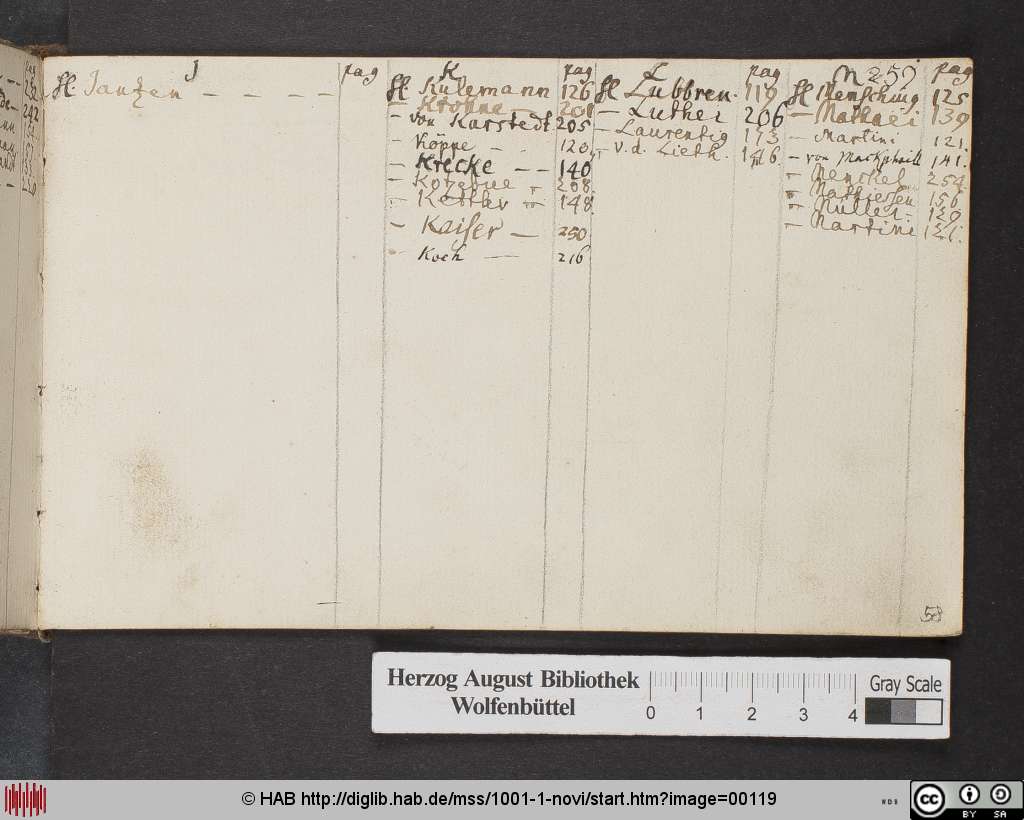 J pag
H. Jantzen - - - -
K pag
H. Kulemann 126
- Kroppe - 201
- von Karstedt 205
- Köppe - - 120.
- Krecke - - 140
- Kotzebue - 208.
- Kettler - 148.
- Kaiser - 250
- Koch - 216
L pag
H. Lübbren. 119
- Luther 206
- Laurentig 173
- v. d. Lieth.
M 259 pag
H. Mensching 125
- Mathaei 139
- Martini 121.
- von Mackphail 141.
- Menckel 254.
- Mathiessen 156
- Müller. 129
- Martini
58
Herzog August Bibliothek
Wolfenbüttel
0 1 2 3 4
Gray Scale
© HAB http://diglib.hab.de/mss/1001-1-novi/start.htm?image=00119
WDB
cc BY SA